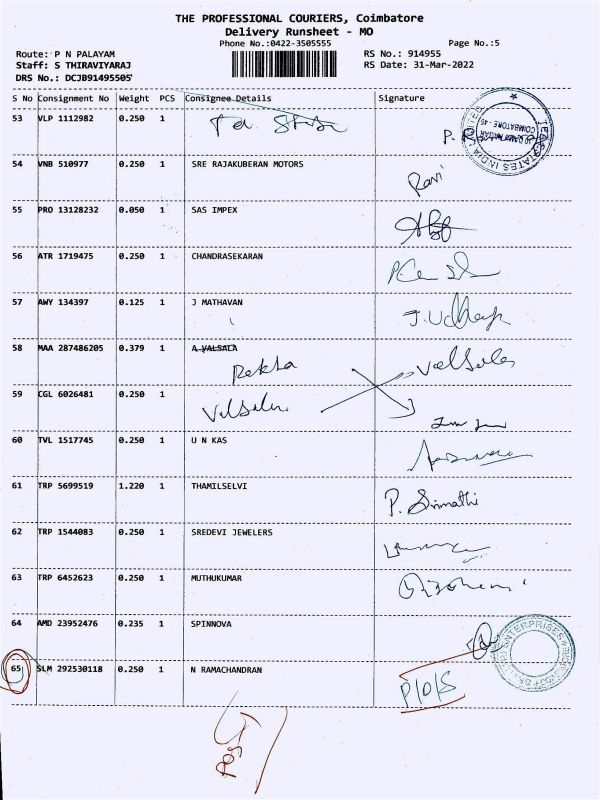 THE PROFESSIONAL COURIERS, Coimbatore
Delivery Runsheet - MO
Phone No.:0422-3505555 Page No.:5
Route: P N PALAYAM RS No.: 914955
Staff: S THIRAVIYARAJ RS Date: 31-Mar-2022
DRS No.: DCJB91495505
S No Consignment No Weight PCS Consignee Details Signature
53 VLP 1112982 0.250 1
54 VNB 510977 0.250 1 SRE RAJAKUBERAN MOTORS
Ravi
55 PRO 13128232 0.050 1 SAS IMPEX
56 ATR 1719475 0.250 1 CHANDRASEKARAN
57 AWY 134397 0.125 1 J MATHAVAN
58 MAA 287486205 0.379 1 A VALSALA
Rekha Valsala
59 CGL 6026481 0.250 1
Valsala
60 TVL 1517745 0.250 1 U N KAS
61 TRP 5699519 1.220 1 THAMILSELVI
P. Srimathi
62 TRP 1544083 0.250 1 SREDEVI JEWELERS
63 TRP 6452623 0.250 1 MUTHUKUMAR
64 AMD 23952476 0.235 1 SPINNOVA
ENTERPRISES
65 SLM 292530118 0.250 1 N RAMACHANDRAN
P/O/S